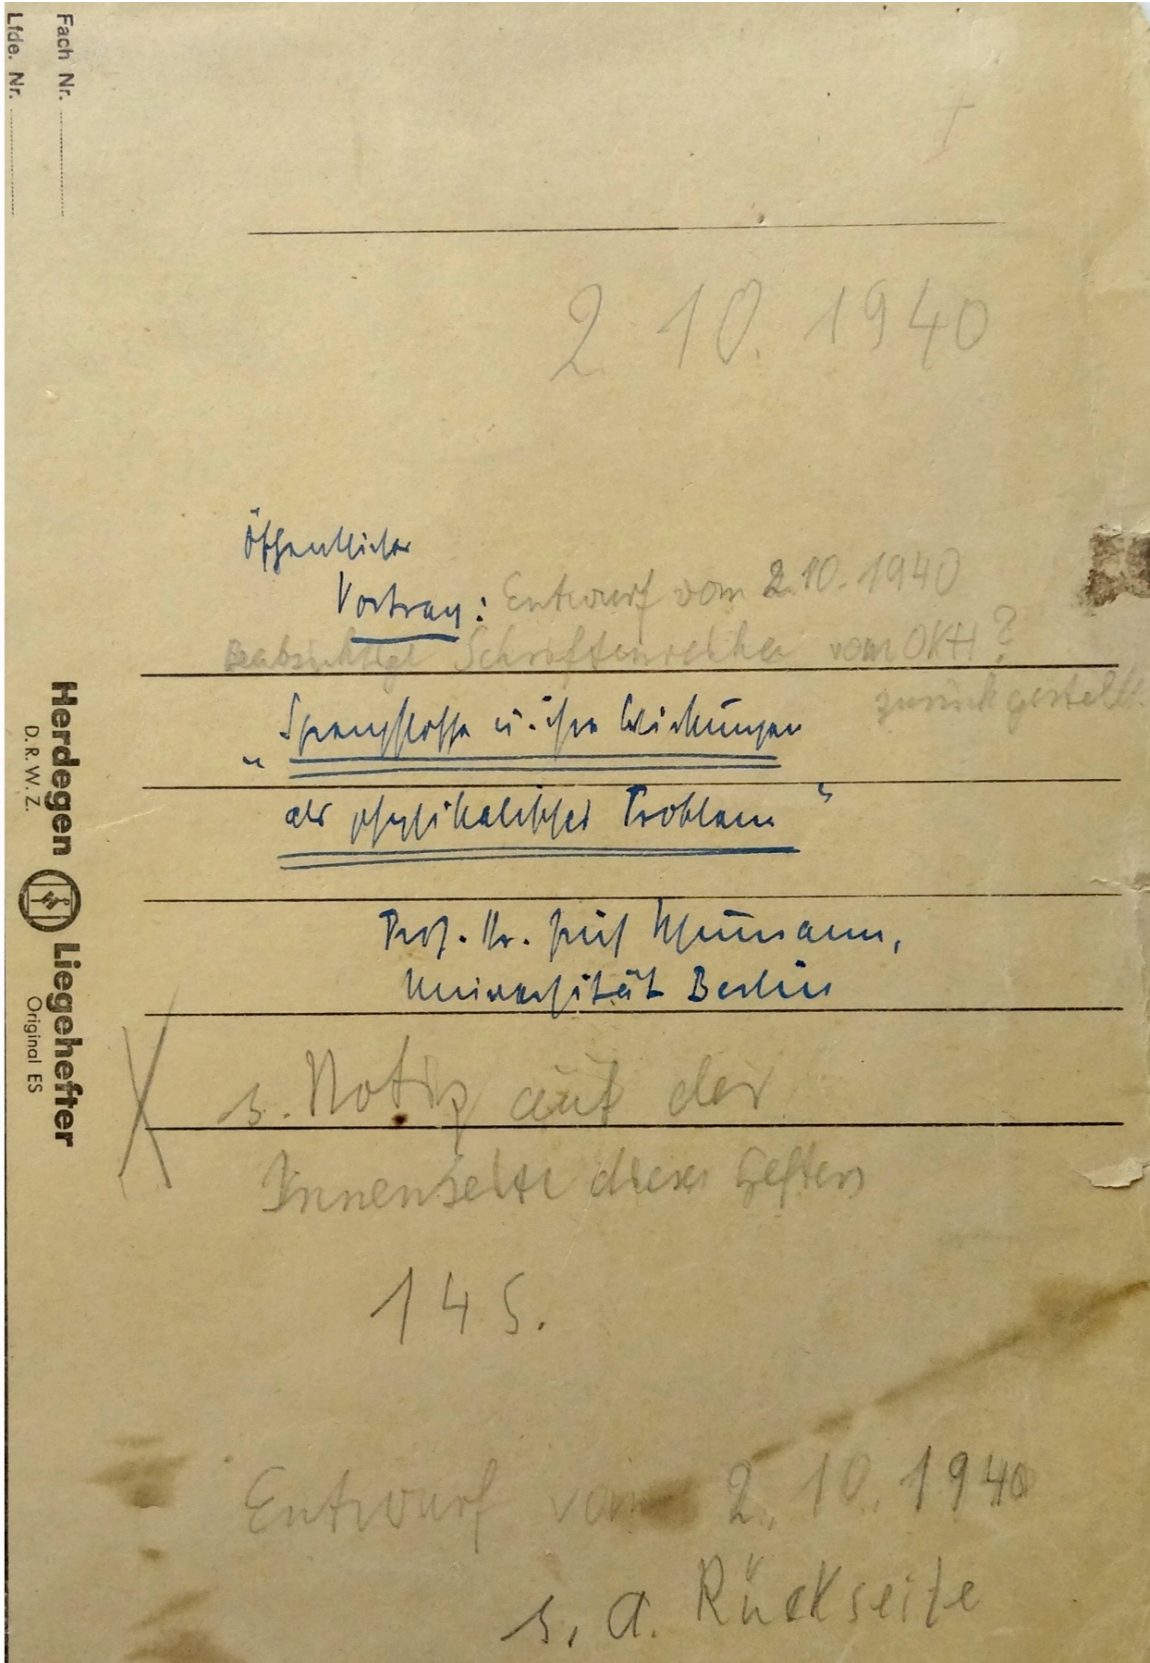 Fach Nr.
Lfde. Nr.
I
2. 10. 1940
Öffentlicher
Vortrag: Entwurf vom 2.10.1940
Beabsichtigt Schriftenreihe vom OKH?
zurückgestellt
„Sprengstoffe u. ihre Wirkungen
als physikalisches Problem“
Prof. Dr. Erich Schumann,
Universität Berlin
s. Notiz auf der
Innenseite dieses Hefters
14 S.
Entwurf vom 2. 10. 1940
s. a. Rückseite
Herdegen Liegehefter
D.R.W.Z. Original ES